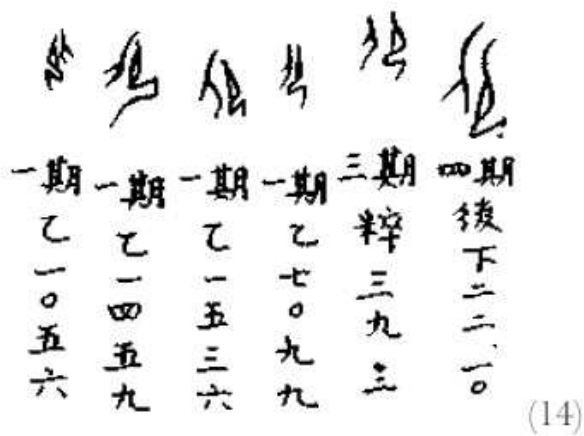 一期乙一〇五六
一期乙一四五九
一期乙一五三六
一期乙七〇九九
三期粹三九三
四期後下二二.一〇
(14)